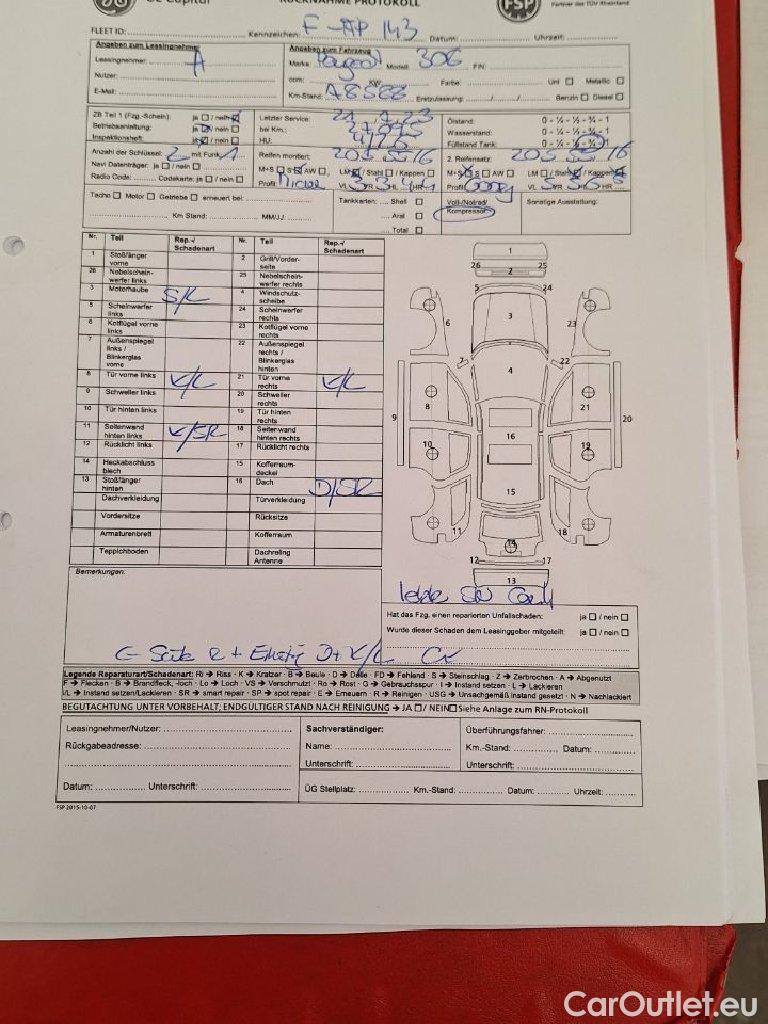 GE Capital
RÜCKNAHME PROTOKOLL
FSP
Partner des TÜV Rheinland
FLEET ID: Kennzeichen: F-AP 143 Datum: Uhrzeit:
Angaben zum Leasingnehmer
Leasingnehmer: A
Nutzer:
E-Mail:
Angaben zum Fahrzeug
Marke Peugeot Modell: 306 FIN:
ccm: KW: Farbe: Uni Metallic
Km-Stand: Erstzulassung: / / Benzin Diesel
ZB Teil 1 (Fzg.-Schein): ja / nein
Betriebsanleitung: ja / nein
Inspektionsheft: ja / nein
Letzter Service:
bei Km.:
HU:
Ölstand: 0 - ¼ - ½ - ¾ - 1
Wasserstand: 0 - ¼ - ½ - ¾ - 1
Füllstand Tank: 0 - ¼ - ½ - ¾ - 1
Anzahl der Schlüssel: 2 mit Funk: 1
Navi Datenträger: ja / nein
Radio Code: Codekarte: ja / nein
Reifen montiert: 205 55 16
M+S S AW LM / Stahl / Kappen
Profil: VL VR HL HR
2. Reifensatz: 205 55 16
M+S S AW LM / Stahl / Kappen
Profil VL VR HL HR
Tacho Motor Getriebe erneuert bei:
Km Stand: MM/JJ:
Tankkarten: Shell
Aral
Total
Voll-/Notrad/
Kompressor
Sonstige Ausstattung:
Nr. Teil Rep.-/ Schadenart Nr. Teil Rep.-/ Schadenart
1 Stoßfänger vorne 2 Grill/Vorderseite
26 Nebelscheinwerfer links 25 Nebelscheinwerfer rechts
3 Motorhaube S/L 4 Windschutzscheibe
5 Scheinwerfer links 24 Scheinwerfer rechts
6 Kotflügel vorne links 23 Kotflügel vorne rechts
7 Außenspiegel links / Blinkerglas vorne 22 Außenspiegel rechts / Blinkerglas hinten
8 Tür vorne links K/L 21 Tür vorne rechts K/L
9 Schweller links 20 Schweller rechts
10 Tür hinten links 19 Tür hinten rechts
11 Seitenwand hinten links K/SR 18 Seitenwand hinten rechts
12 Rücklicht links 17 Rücklicht rechts
14 Heckabschlussblech 15 Kofferraumdeckel
13 Stoßfänger hinten 16 Dach D/SR
Dachverkleidung Türverkleidung
Vordersitze Rücksitze
Armaturenbrett Kofferraum
Teppichboden Dachreling Antenne
1
26 25
2
5 24
3
6 23
7 22
4
8 21
9 20
16
10 19
15
11 18
14
12 17
13
Bemerkungen:
Hat das Fzg. einen reparierten Unfallschaden: ja / nein
Wurde dieser Schaden dem Leasinggeber mitgeteilt: ja / nein
Legende Reparaturart/Schadenart: RI → Riss · K → Kratzer · B → Beule · D → Delle · FD → Fehlend · S → Steinschlag · Z → Zerbrochen · A → Abgenutzt
F → Flecken · Bl → Brandfleck, -loch · Lo → Loch · VS → Verschmutzt · Ro → Rost · G → Gebrauchsspur · I → Instand setzen · L → Lackieren
I/L → Instand setzen/Lackieren · SR → smart repair · SP → spot repair · E → Erneuern · R → Reinigen · USG → Unsachgemäß instand gesetzt · N → Nachlackiert
BEGUTACHTUNG UNTER VORBEHALT; ENDGÜLTIGER STAND NACH REINIGUNG → JA / NEIN Siehe Anlage zum RN-Protokoll
Leasingnehmer/Nutzer:
Rückgabeadresse:
Datum: Unterschrift:
Sachverständiger:
Name:
Unterschrift:
Überführungsfahrer:
Km.-Stand: Datum:
Unterschrift:
ÜG Stellplatz: Km.-Stand: Datum: Uhrzeit:
FSP 2015-10-07
CarOutlet.eu